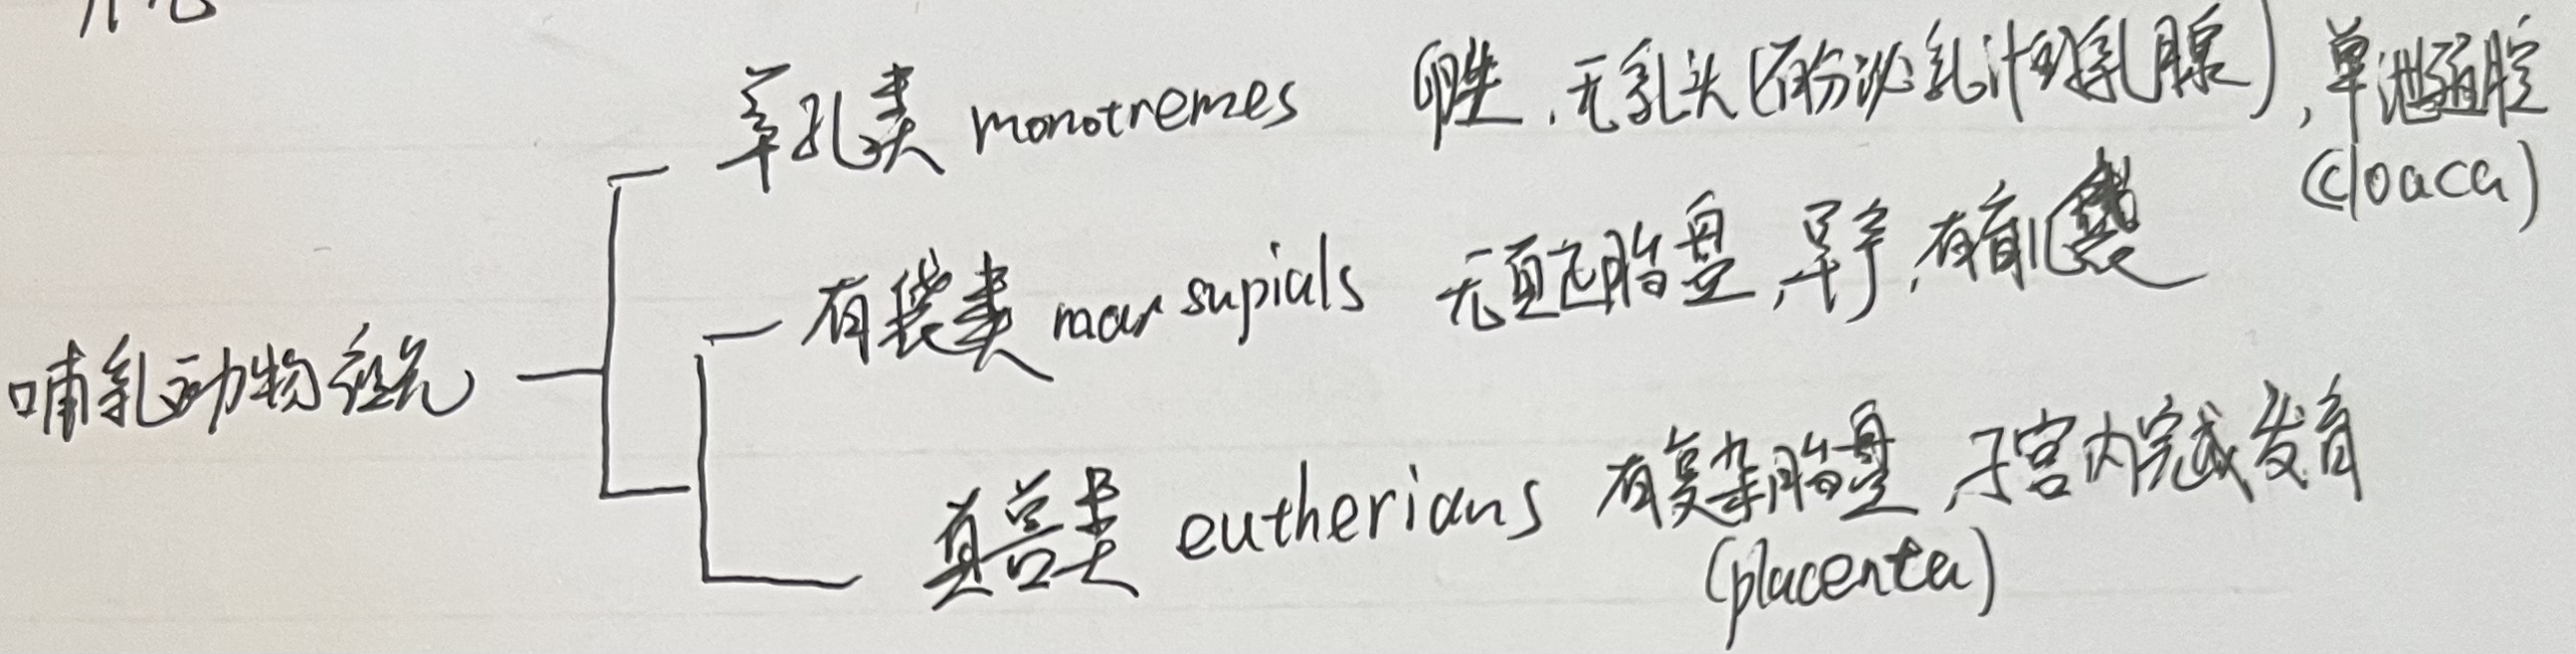 单孔类 monotremes 卵生,无乳头(有分泌乳汁的乳腺),单泄殖腔
(cloaca)
有袋类 marsupials 无真正胎盘,早产,有育儿袋
哺乳动物祖先
真兽类 eutherians 有复杂胎盘,子宫内完成发育
(placenta)